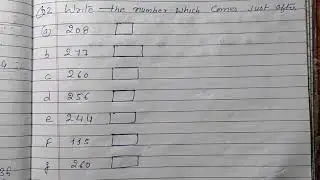 Q.2. Write the number which comes just after
(a) 208
b 217
c 260
d 256
e 244
f 115
g 260